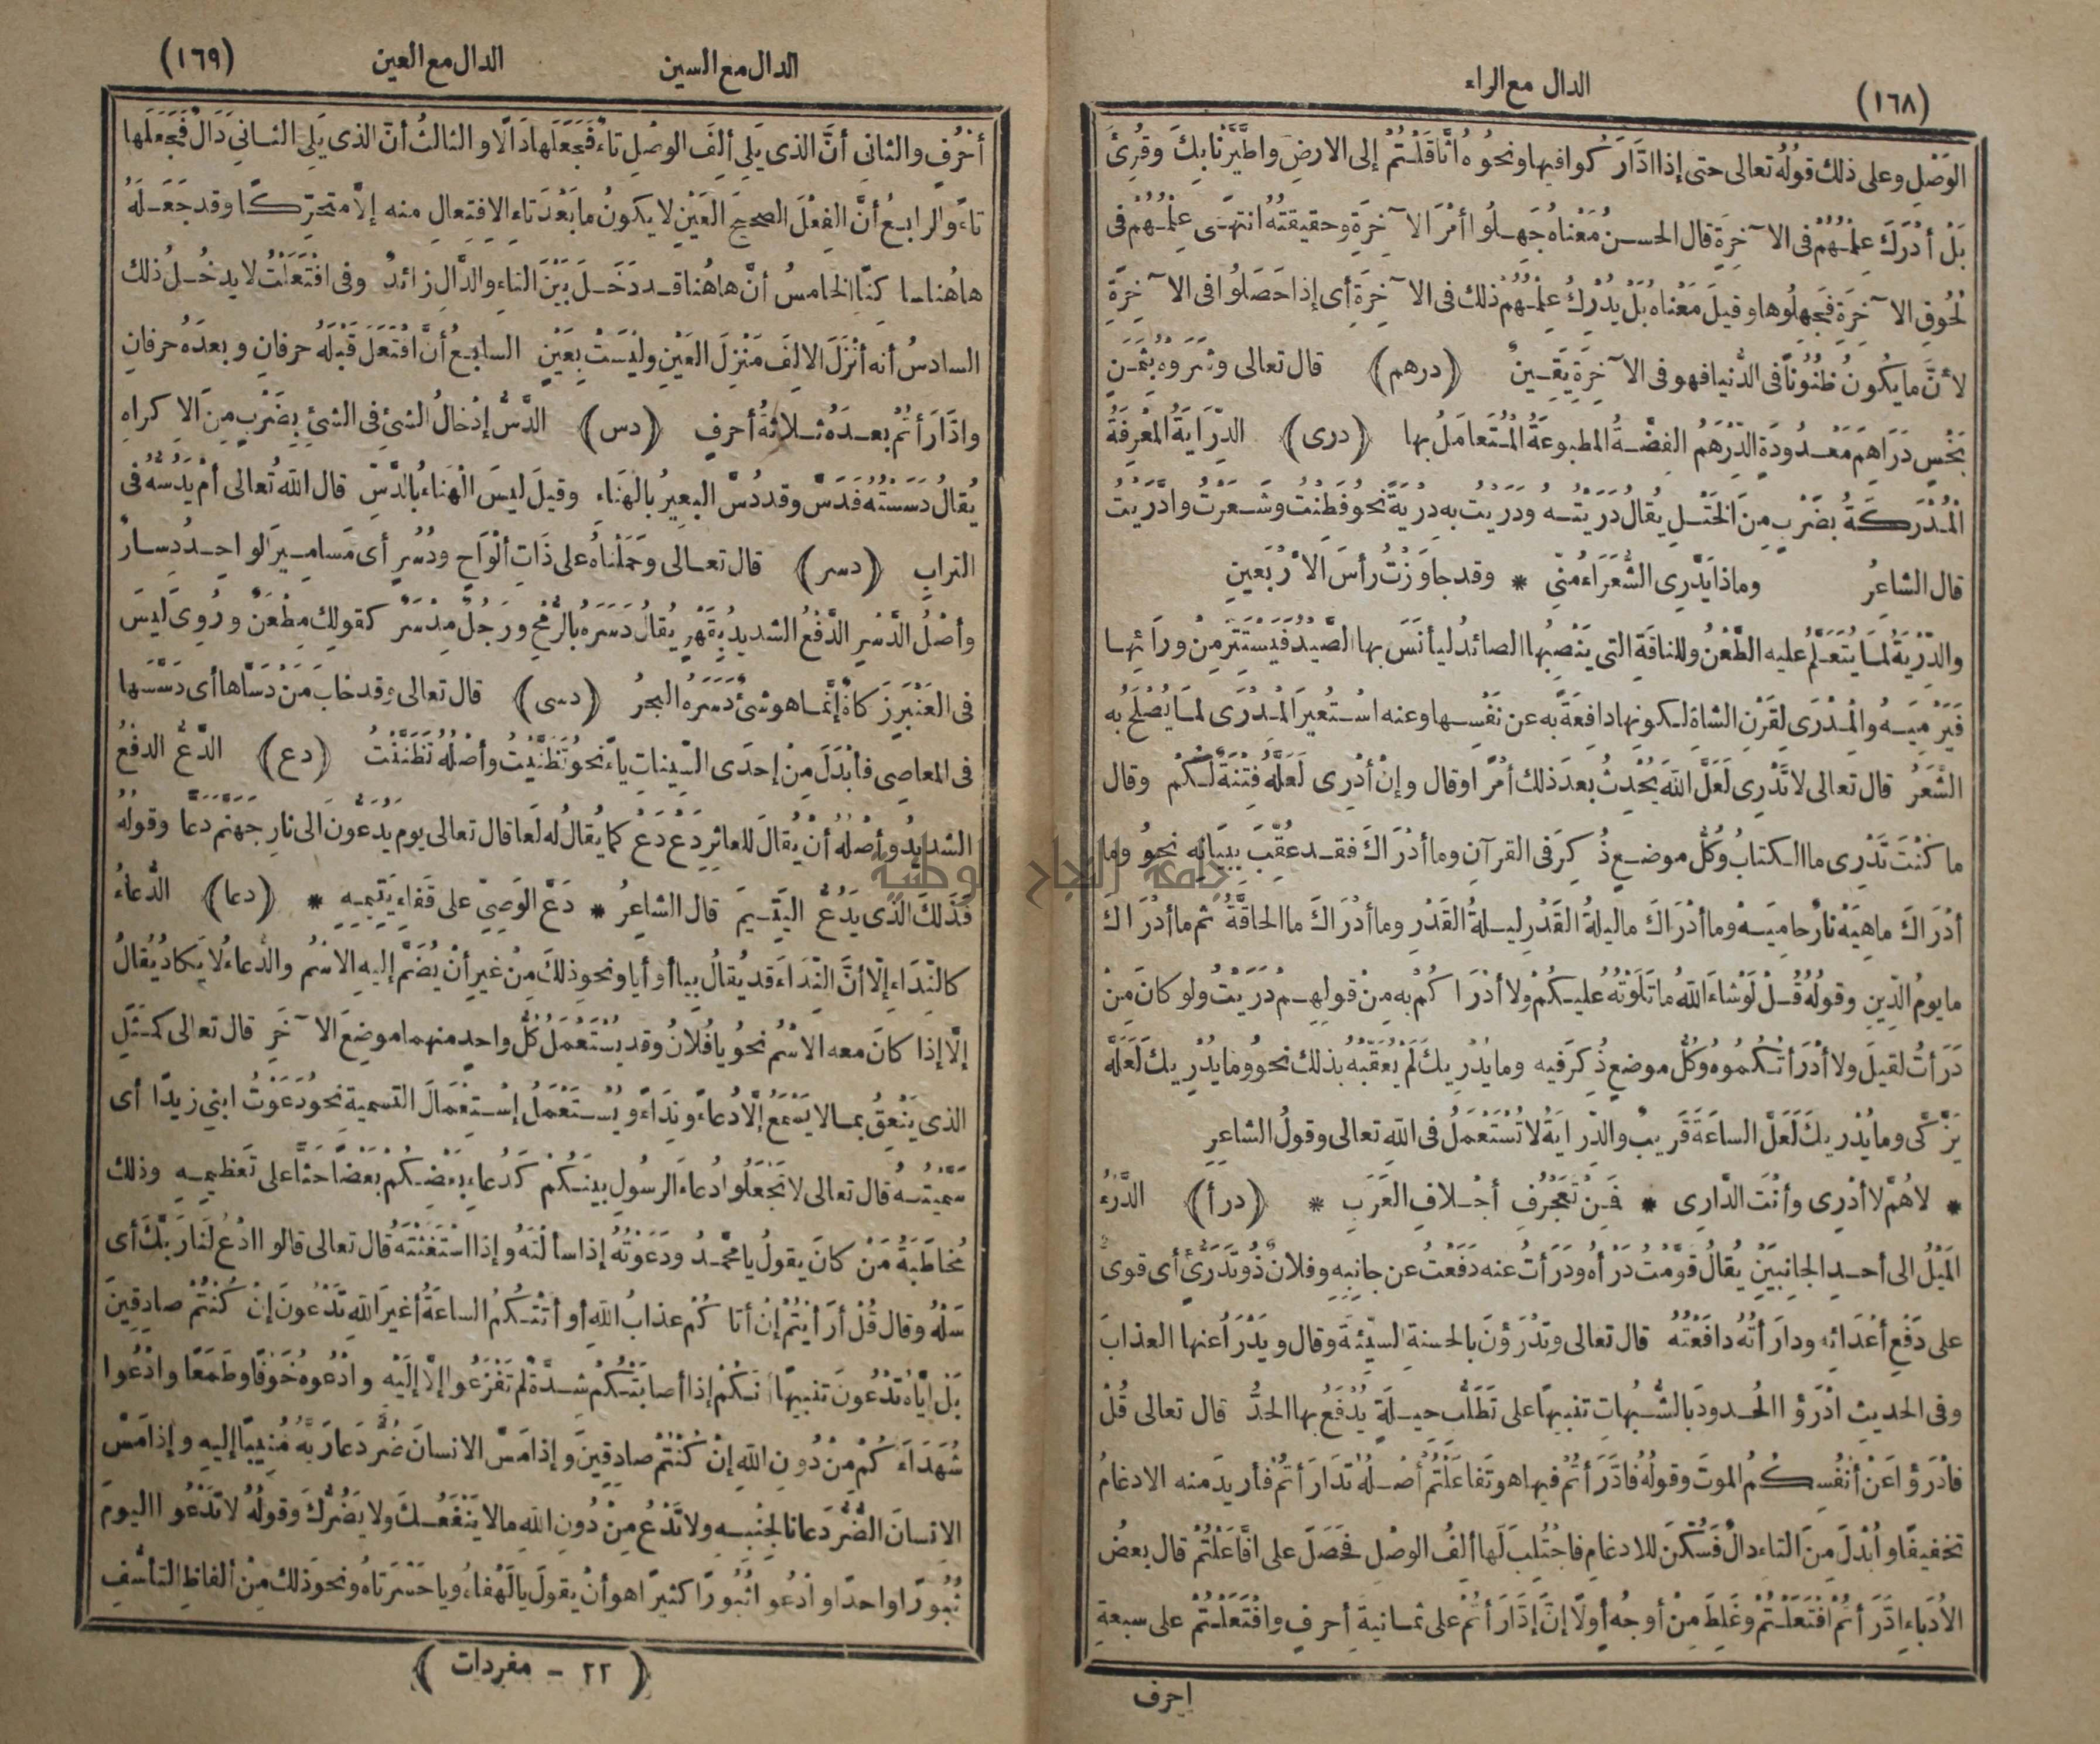 (١٦٨)
الدال مع الراء
الوَصْلِ وعلى ذلك قولُهُ تعالى حتى إذا ادَّارَكُوا فيها ونحوُهُ اثَّاقَلْتُمْ إلى الارضِ واطَّيَّرْنا بِكَ وقُرِئَ
بَلْ أَدْرَكَ عِلْمُهُمْ فى الآخِرَةِ قال الحسنُ مَعْناهُ جَهِلُوا أمْرَ الآخِرَةِ وحقيقتُهُ انتهَى عِلْمُهُمْ فى
لُحُوقِ الآخِرَةِ فَجَهِلُوها وقيلَ مَعْناهُ بَلْ يُدْرِكُ عِلْمُهُمْ ذلك فى الآخِرَةِ أى إذا حَصَلُوا فى الآخِرَةِ
لأنَّ ما يكُونُ ظُنُونًا فى الدُّنيا فهو فى الآخِرَةِ يَقِينٌ (درهم) قال تعالى وشَرَوْهُ بِثَمَنٍ
بَخْسٍ دَرَاهِمَ مَعْدُودَةٍ الدِّرْهَمُ الفِضَّةُ المطبوعَةُ المُتَعامَلُ بها (درى) الدِّرَايَةُ المَعْرِفَةُ
المُدْرَكَةُ بضَرْبٍ مِنَ الخَتْلِ يقالُ دَرَيْتُهُ ودَرَيْتُ به دِرْيَةً نحوُ فَطِنْتُ وشَعَرْتُ وادَّرَيْتُ
قال الشاعِرُ وماذا يَدَّرِى الشُّعَرَاءُ مِنِّى * وقد جاوَزْتُ رأسَ الأرْبَعينِ
والدَّرْيَةُ لمَا يُتَعَلَّمُ عليه الطَّعْنُ وللناقَةِ التى يَنْصِبُها الصائدُ ليأنَسَ بها الصَّيْدُ فَيَسْتَتِرَ مِنْ ورَائِها
فَيَرْمِيَهُ والمِدْرَى لِقَرْنِ الشاةِ لكونِها دافِعَةً به عن نَفْسِها وعنه اسْتُعِيرَ المِدْرَى لمَا يُصْلَحُ به
الشَّعَرُ قال تعالى لا تَدْرِى لَعَلَّ اللهَ يُحْدِثُ بعدَ ذلك أمْرًا وقال وإنْ أدْرِى لَعَلَّهُ فِتْنَةٌ لكُمْ وقال
ما كنْتَ تَدْرِى ما الكتابُ وكُلُّ موضعٍ ذُكِرَ فى القرآنِ وما أدْرَاكَ فقد عُقِّبَ بِبَيَانِهِ نحوُ وما
أدْرَاكَ ماهِيَهْ نارٌ حامِيَةٌ وما أدْرَاكَ ماليلةُ القَدْرِ ليلةُ القَدْرِ وما أدْرَاكَ ما الحاقَّةُ ثم ما أدْرَاكَ
ما يومُ الدِّينِ وقولُهُ قُلْ لَوْ شاءَ اللهُ ما تَلَوْتُهُ عليكُمْ ولا أدْرَاكُمْ به مِنْ قولِهِمْ دَرَيْتُ ولو كانَ مِنْ
دَرَأتُ لقيلَ ولا أدْرَأتُكُمُوهُ وكُلُّ موضعٍ ذُكِرَ فيه وما يُدْرِيكَ لَمْ يُعَقِّبْهُ بذلك نحوُ وما يُدْرِيكَ لَعَلَّهُ
يَزَّكَّى وما يُدْرِيكَ لَعَلَّ الساعَةَ قَرِيبٌ والدِّرَايَةُ لا تُسْتَعْمَلُ فى اللهِ تعالى وقولُ الشاعِرِ
* لاهُمَّ لا أدْرِى وأنْتَ الدَّارِى * فَمِنْ تَعَجْرُفِ أجْلافِ العَرَبِ * (درأ) الدَّرْءُ
المَيْلُ الى أحدِ الجانِبَيْنِ يقالُ قَوَّمْتُ دَرْأهُ ودَرَأْتُ عنه دَفَعْتُ عن جانِبِهِ وفلانٌ ذُو تَدَرِّئٍ أى قوىٌّ
على دَفْعِ أعْدَائِهِ ودارَأتُهُ دافَعْتُهُ قال تعالى ويَدْرَؤُنَ بالحسنةِ السيِّئَةَ وقال ويَدْرَأُ عنها العذابَ
وفى الحديثِ ادْرَؤُا الحُدودَ بالشُّبُهاتِ تنبيهًا على تَطَلُّبِ حيلةٍ يُدْفَعُ بها الحدُّ قال تعالى قُلْ
فادْرَؤُا عَنْ أنْفُسِكُمُ الموتَ وقولُهُ فادَّارَأتُمْ فيها هو تَفاعَلْتُمْ أصْلُهُ تَدَارَأتُمْ فأريدَ منه الادغامُ
تخفيفًا وأُبْدِلَ مِنَ التاءِ دالٌ فَسُكِّنَ للادغامِ فاجْتُلِبَ لَها ألِفُ الوصْلِ فَحَصَلَ على افَّاعَلْتُمْ قال بعضُ
الأدَباءِ ادَّارَأتُمْ افْتَعَلْتُمْ وغَلِطَ مِنْ أوجُهٍ أولًا إنَّ ادَّارَأتُمْ على ثمانيةِ أحرفٍ وافْتَعَلْتُمْ على سبعةِ
احرف
الدال مع السين
الدال مع العين
(١٦٩)
أحْرُفٍ والثانى أنَّ الذى يَلِى ألِفَ الوصْلِ تاءٌ فَجَعَلَها دَالًا والثالثُ أنَّ الذى يَلِى الثانِىَ دَالٌ فَجَعَلَها
تاءً والرابعُ أنَّ الفِعْلَ الصحيحَ العَيْنِ لا يكونُ ما بَعْدَ تاءِ الافتِعالِ منه إلَّا متحرِّكًا وقد جَعَلَهُ
هاهُنا ساكِنًا الخامسُ أنَّ هاهُنا قد دَخَلَ بَيْنَ التاءِ والدَّالِ زائدٌ وفى افْتَعَلْتُ لا يدخُلُ ذلك
السادسُ أنه أنْزَلَ الالِفَ مَنْزِلَ العَيْنِ وليْسَتْ بِعَيْنٍ السابعُ أنَّ افْتَعَلَ قَبْلَهُ حرفانِ وبعدَهُ حرفانِ
وادَّارَأتُمْ بعدَهُ ثلاثةُ أحرفٍ (دس) الدَّسُّ إدْخالُ الشئِ فى الشئِ بِضَرْبٍ مِنَ الاكراهِ
يُقالُ دَسَسْتُهُ فَدَسَّ وقد دُسَّ البعيرُ بالهِنَاءِ وقيلَ ليسَ الهِنَاءُ بالدَّسِّ قال اللهُ تعالى أمْ يَدُسُّهُ فى
الترابِ (دسر) قال تعالى وحَمَلْناهُ على ذَاتِ ألْوَاحٍ ودُسُرٍ أى مَسامِيرَ الواحِدُ دِسارٌ
وأصْلُ الدَّسْرِ الدَّفْعُ الشديدُ بِقَهْرٍ يُقالُ دَسَرَهُ بالرُّمْحِ ورَجُلٌ مِدْسَرٌ كقولِكَ مِطْعَنٌ ورُوِىَ ليسَ
فى العَنْبَرِ زَكاةٌ إنَّما هو شئٌ دَسَرَهُ البحرُ (دسى) قال تعالى وقد خابَ مَنْ دَسَّاها أى دَسَّسَها
فى المعاصِى فأبْدَلَ مِنْ إحدَى السِّيناتِ ياءً نحوُ تَظَنَّيْتُ وأصْلُهُ تَظَنَّنْتُ (دع) الدَّعُّ الدفعُ
الشديدُ وأصْلُهُ أنْ يُقالَ للعاثِرِ دَعْ دَعْ كما يُقالُ له لَعًا قال تعالى يوم يُدَعُّونَ الى نارِ جَهَنَّمَ دَعًّا وقولُهُ
فَذَلِكَ الَّذى يَدُعُّ اليَتِيمَ قال الشاعِرُ * دَعَّ الوَصِىِّ على قَفاءِ يَتيمِهِ * (دعا) الدُّعاءُ
كالنِّدَاءِ إلّا أنَّ النِّدَاءَ قد يُقالُ بيا أو أيا ونحوِ ذلكَ مِنْ غيرِ أنْ يُضَمَّ إليهِ الاسْمُ والدُّعاءُ لا يَكادُ يُقالُ
إلَّا إذا كانَ معه الاسْمُ نحوُ يا فُلانُ وقد يُسْتَعْمَلُ كُلُّ واحدٍ منهما موضِعَ الآخَرِ قال تعالى كَمَثَلِ
الذى يَنْعِقُ بمالا يَسْمَعُ إلَّا دُعاءً ونِدَاءً ويُسْتَعْمَلُ إسْتِعْمَالَ التسميةِ نحوُ دَعَوْتُ ابنى زيدًا أى
سَمَّيْتُهُ قال تعالى لا تَجْعَلُوا دُعاءَ الرسُولِ بينَكُمْ كَدُعاءِ بَعْضِكُمْ بَعْضًا حَثًّا على تَعْظيمِهِ وذلك
مُخاطَبَةُ مَنْ كانَ يقولُ يا محمدُ ودَعَوْتُهُ إذا سألْتَهُ وإذا اسْتَغَثْتَهُ قال تعالى قالوا ادْعُ لَنا رَبَّكَ أى
سَلْهُ وقال قُلْ أرَأيْتُمْ إنْ أتاكُمْ عذابُ اللهِ أو أتَتْكُمُ الساعَةُ أغيرَ اللهِ تَدْعُونَ إنْ كُنْتُمْ صادِقِينَ
بَلْ إيَّاهُ تَدْعُونَ تنبيهًا أنكُمْ إذا أصابَتْكُمْ شِدَّةٌ لم تَفْزَعُوا إلَّا إلَيْهِ وادْعُوهُ خَوْفًا وطَمَعًا وادْعُوا
شُهَدَاءَكُمْ مِنْ دُونِ اللهِ إنْ كُنْتُمْ صادِقِينَ وإذا مَسَّ الانسانَ ضُرٌّ دَعا رَبَّهُ مُنِيبًا إليهِ وإذا مَسَّ
الانسانَ الضُّرُّ دَعانا لِجَنْبِهِ ولا تَدْعُ مِنْ دُونِ اللهِ مالا يَنْفَعُكَ ولا يَضُرُّكَ وقولُهُ لا تَدْعُوا اليومَ
ثُبُورًا واحدًا وادْعُوا ثُبُورًا كثيرًا هو أنْ يقولَ يا لَهْفاهُ ويا حَسْرَتاهُ ونحوَ ذلك مِنْ ألفاظِ التأسُّفِ
(٢٢ - مفردات)
جامعة النجاح الوطنية